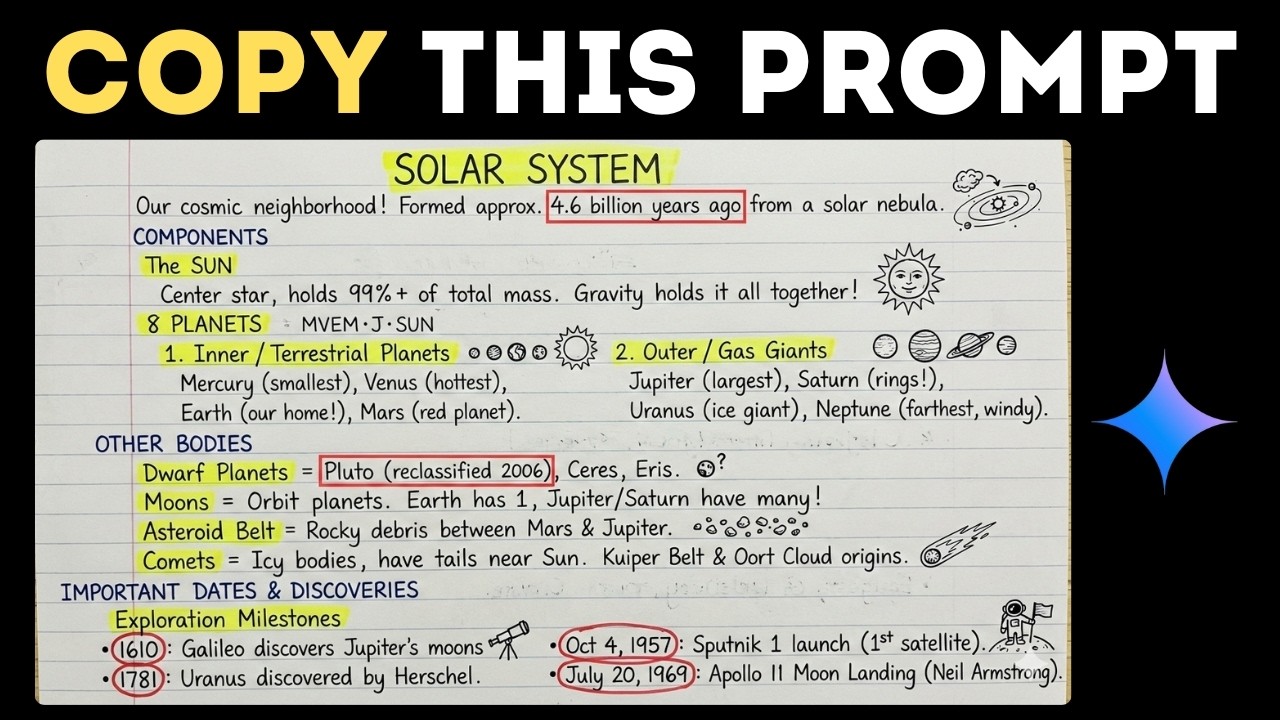 COPY THIS PROMPT
SOLAR SYSTEM
Our cosmic neighborhood! Formed approx. 4.6 billion years ago from a solar nebula.
COMPONENTS
The SUN
Center star, holds 99%+ of total mass. Gravity holds it all together!
8 PLANETS - MVEM·J·SUN
1. Inner/Terrestrial Planets
Mercury (smallest), Venus (hottest),
Earth (our home!), Mars (red planet).
2. Outer/Gas Giants
Jupiter (largest), Saturn (rings!),
Uranus (ice giant), Neptune (farthest, windy).
OTHER BODIES
Dwarf Planets = Pluto (reclassified 2006), Ceres, Eris. ?
Moons = Orbit planets. Earth has 1, Jupiter/Saturn have many!
Asteroid Belt = Rocky debris between Mars & Jupiter.
Comets = Icy bodies, have tails near Sun. Kuiper Belt & Oort Cloud origins.
IMPORTANT DATES & DISCOVERIES
Exploration Milestones
• 1610: Galileo discovers Jupiter's moons
• 1781: Uranus discovered by Herschel.
• Oct 4, 1957: Sputnik 1 launch (1st satellite).
• July 20, 1969: Apollo 11 Moon Landing (Neil Armstrong).